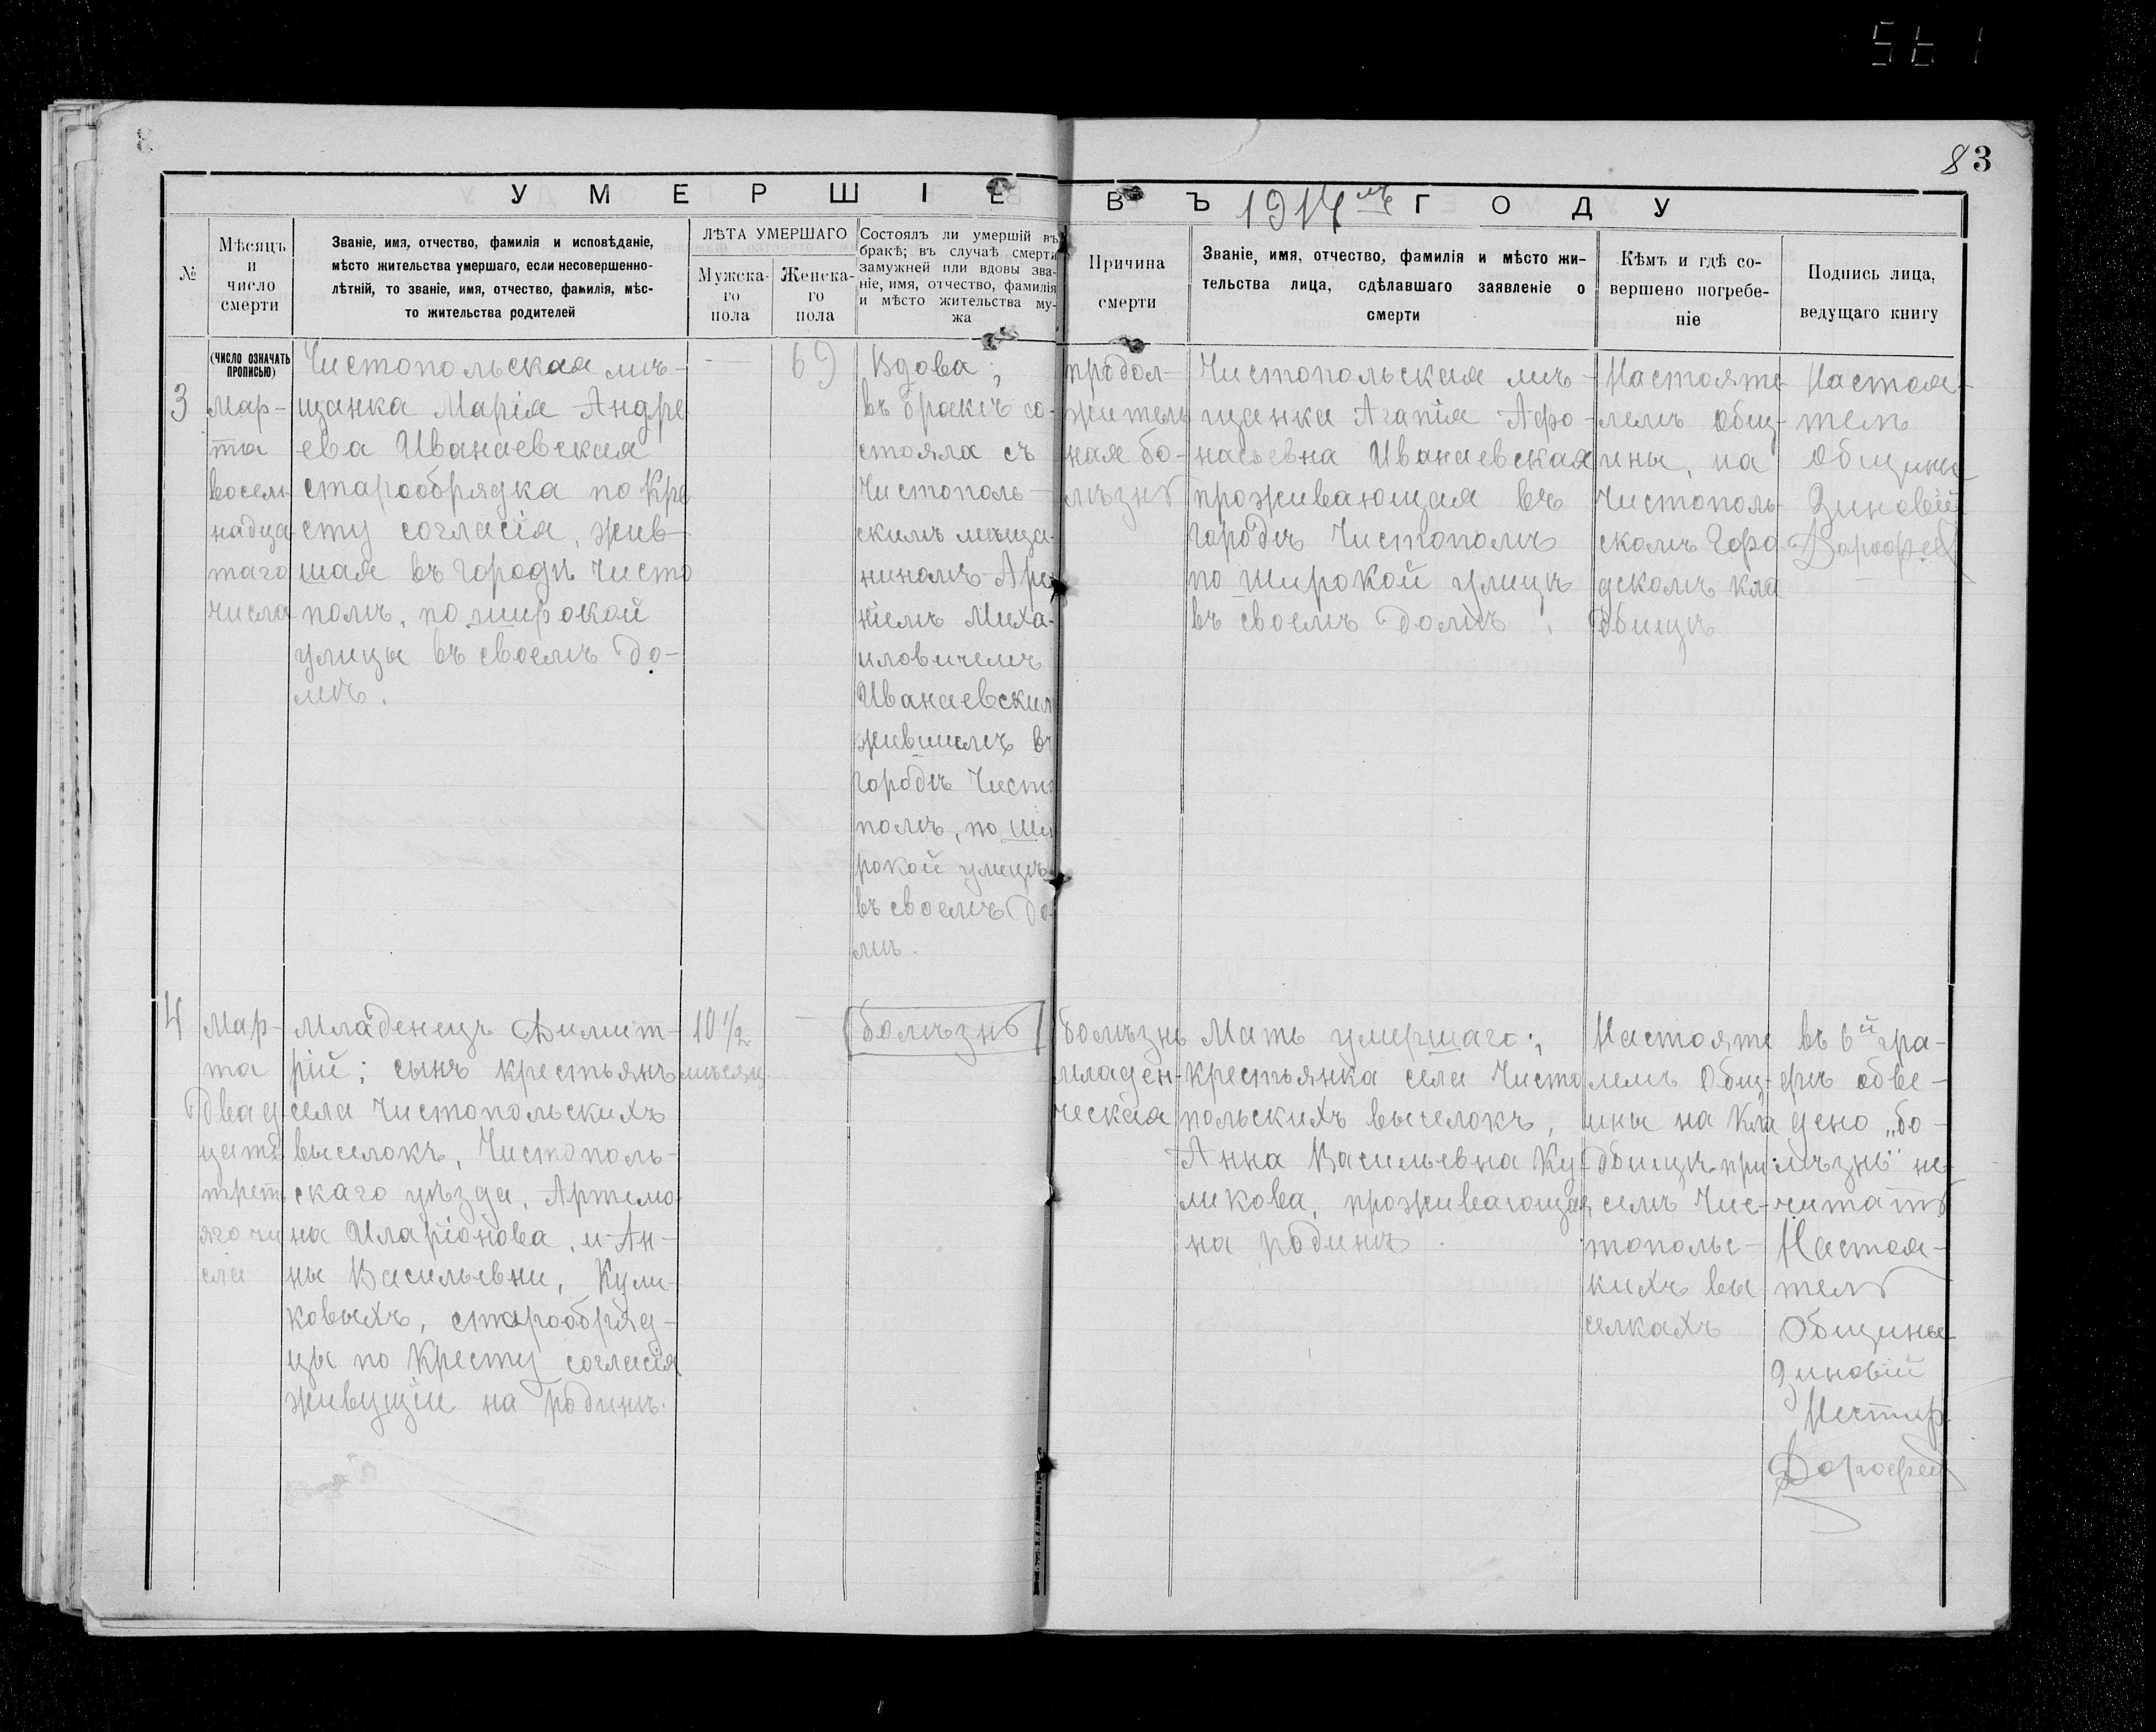 83
УМЕРШІЕ ВЪ 1914мъ ГОДУ
№
Мѣсяцъ
и
число
смерти
Званіе, имя, отчество, фамилія и исповѣданіе,
мѣсто жительства умершаго, если несовершенно-
лѣтній, то званіе, имя, отчество, фамилія, мѣс-
то жительства родителей
ЛѢТА УМЕРШАГО
Мужска-
го
пола
Женска-
го
пола
Состоялъ ли умершій въ
бракѣ; въ случаѣ смерти
замужней или вдовы зва-
ніе, имя, отчество, фамилія
и мѣсто жительства му-
жа
Причина
смерти
Званіе, имя, отчество, фамилія и мѣсто жи-
тельства лица, сдѣлавшаго заявленіе о
смерти
Кѣмъ и гдѣ со-
вершено погребе-
ніе
Подпись лица,
ведущаго книгу
(ЧИСЛО ОЗНАЧАТЬ
ПРОПИСЬЮ)
3
Мар-
та
восем
надца
таго
числа
Чистопольская мѣ-
щанка Марія Андре
ева Иванаевская
старообрядка по Кре
сту согласія, жив-
шая въ городѣ Чисто
полѣ, по широкой
улицы въ своемъ до-
мѣ.
—
69
Вдова;
въ бракѣ со-
стояла съ
Чистополь-
скимъ мѣща-
ниномъ
ніемъ Миха-
иловичемъ
Иванаевским
жившимъ въ
городѣ Чисто
полѣ, по Ши
рокой улицѣ
въ своемъ до-
мѣ.
продол-
житель
ная бо-
лѣзнь
Чистопольская мѣ-
щанка Агапія Афо-
насьевна Иванаевская
проживающая въ
городѣ Чистополѣ
по широкой улицѣ
въ своемъ домѣ.
Настояте
лемъ Общ-
ины, на
Чистополь
скомъ Горо
дскомъ кла
дбищѣ
Настоя-
тель
Общины
Зиновій
Дорофеев
4
Мар-
та
Двад
цать
трет
яго чи
сла
Младенецъ Димит-
рій; сынъ крестьянъ
села Чистопольскихъ
выселокъ, Чистополь-
скаго уѣзда, Артемо
на Иларіонова, и Ан-
ны Васильевны, Кули-
ковыхъ, старообряд-
цы по Кресту согласія
живущіи на родинѣ.
10 1/2
мѣсяц
—
болѣзнь
болѣзнь
младен-
ческая
Мать умершаго:,
крестьянка села Чисто
польскихъ выселокъ,
Анна Васильевна Ку-
ликова, проживающая
на родинѣ.
Настояте
лемъ Общ-
ины на Кла
дбищѣ при
селѣ Чис-
топольс-
кихъ вы-
селкахъ
въ 6й гра-
фѣ обве-
дено „бо-
лѣзнь“ не
читать
Настоя-
тель
Общины
Зиновій
Нестер
Дорофеев